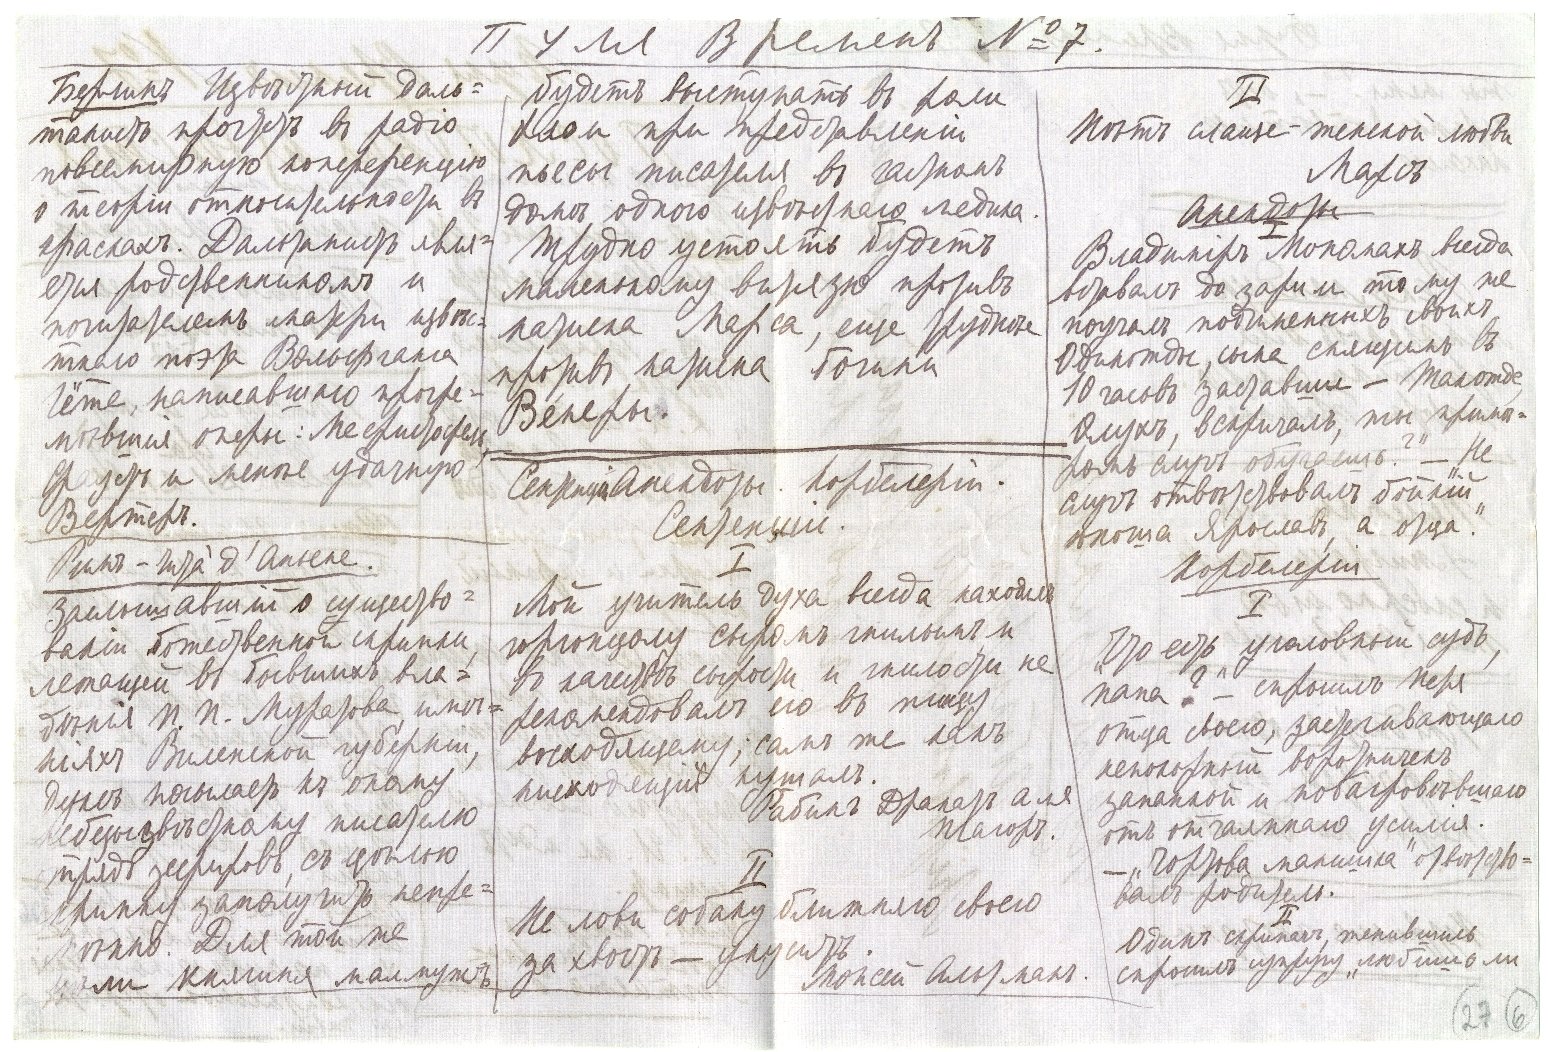 Пуля Временъ № 7.
Берлинъ Извѣстный Даль-
тонистъ прочтетъ въ радiо
повсемирную конференцiю
о теорiи относительности въ
краскахъ. Дальтонистъ явля-
ется родственникомъ и
почитателемъ матери извѣс-
тнаго поэта Вольфганга
Гёте, написавшаго прогре-
мѣвшiя оперы: Мефистофель
Фаустъ и менѣе удачную
Вертеръ.
д'Апене.
Заслышавшiй о существо-
ванiи божественной скрипки,
лежащей въ бывшихъ вла-
дѣнiя П. П. Муратова, имѣ-
нiяхъ Виленской губернiи,
посылаетъ къ оному
писателю
трядъ зефировъ, съ цѣлью
скрипку заполучить непре-
мѣнно. Для той же
цѣли княгиня
будетъ выступать въ роли
при представленiи
пьесы писателя въ частномъ
домѣ одного извѣстнаго медика.
Трудно устоять будетъ
маленькому витязю противъ
натиска Марса, еще труднѣе
противъ натиска богини
Венеры.
Сентенцiи Анекдоты. Норбелерiи.
Сентенцiи.
I
Мой учитель духа всегда находилъ
горгонцолу сыромъ гнилымъ и
въ качествѣ сырости и гнилости не
рекомендовалъ его въ пищу
восходящему; самъ же какъ
нисходящiй кушалъ.
Рабинъ Дранатъ Аля
Тагоръ.
II
Не лови собаку ближняго своего
за хвостъ — укуситъ.
Моисей Альтманъ.
II
Поэтъ слаще-женской любви
Марсъ
Анекдоты
I
Владимiръ Мономахъ всегда
вставалъ до зари и тому же
поучалъ подчиненныхъ своихъ
Одиножды, сына спящимъ въ
10 часовъ заставши —
Олухъ, вскричалъ, ты
слухъ обучаешь?" — „Не
слухъ отвѣтствовалъ бойкiй
юноша Ярославъ, а отца."
Норбелерiи
I
„Что есть уголовный судъ,
папа?" — спросилъ Петя
отца своего, застегивающаго
непокорный воротничекъ
запонкой и побагровѣвшаго
отъ отчаяннаго усилiя.
— „Чортова манишка" отвѣтство-
валъ родитель.
II
Одинъ скрипачъ, женившись
спросилъ супругу „любишь ли
27 6